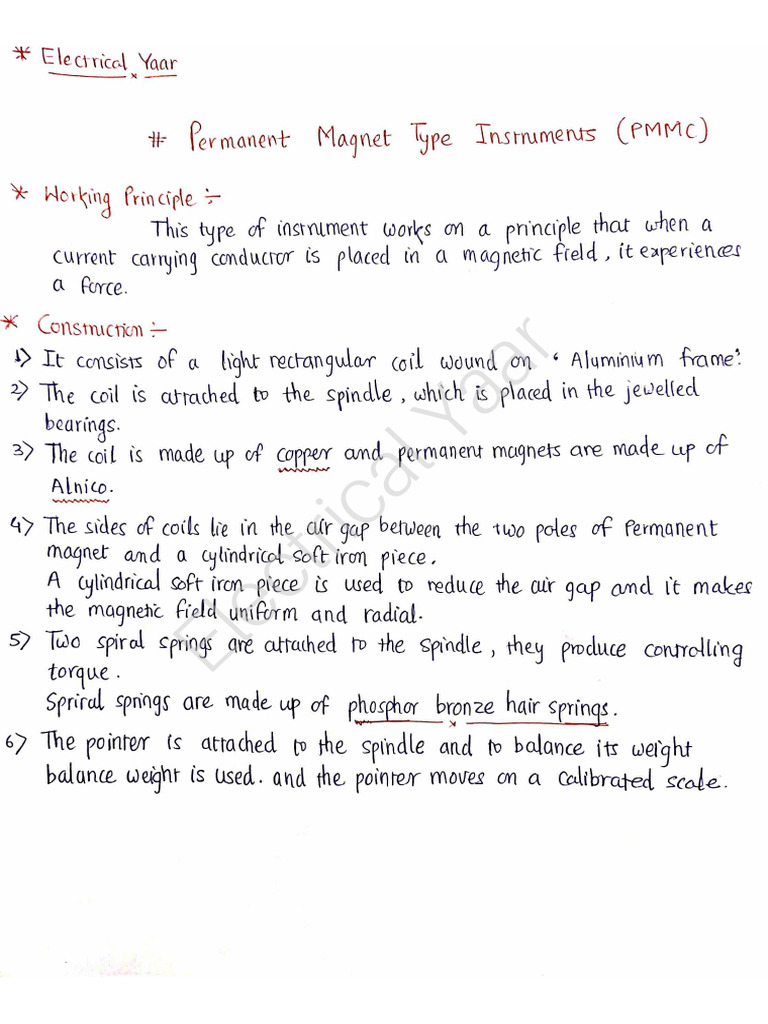 * Electrical Yaar
# Permanent Magnet Type Instruments (PMMC)
* Working Principle :-
This type of instrument works on a principle that when a
current carrying conductor is placed in a magnetic field, it experiences
a force.
* Construction :-
1) It consists of a light rectangular coil wound on ‘Aluminium frame’.
2) The coil is attached to the spindle, which is placed in the jewelled
bearings.
3) The coil is made up of copper and permanent magnets are made up of
Alnico.
4) The sides of coils lie in the air gap between the two poles of Permanent
magnet and a cylindrical soft iron piece.
A cylindrical soft iron piece is used to reduce the air gap and it makes
the magnetic field uniform and radial.
5) Two spiral springs are attached to the spindle, they produce controlling
torque.
Spriral springs are made up of phosphor bronze hair springs.
6) The pointer is attached to the spindle and to balance its weight
balance weight is used. and the pointer moves on a calibrated scale.
Electrical Yaar